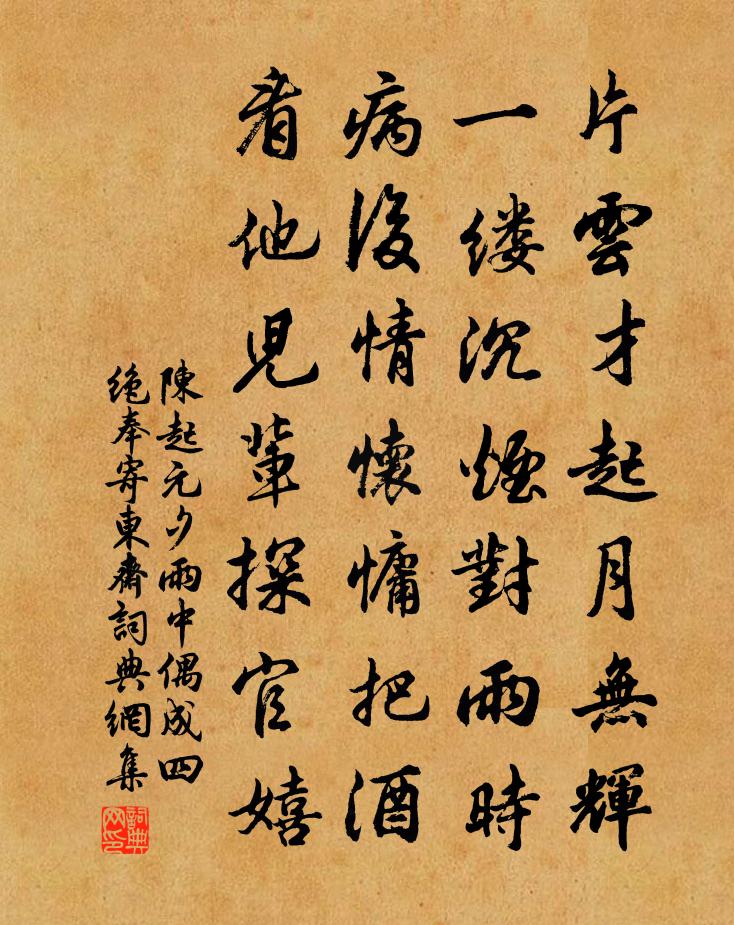 片雲才起月無輝
一缕沉煙對雨時
病後情懷慵把酒
看他児輩探官嬉
陳起元夕雨中偶成四
絶奉寄東齋詞典網集
詞典
网印